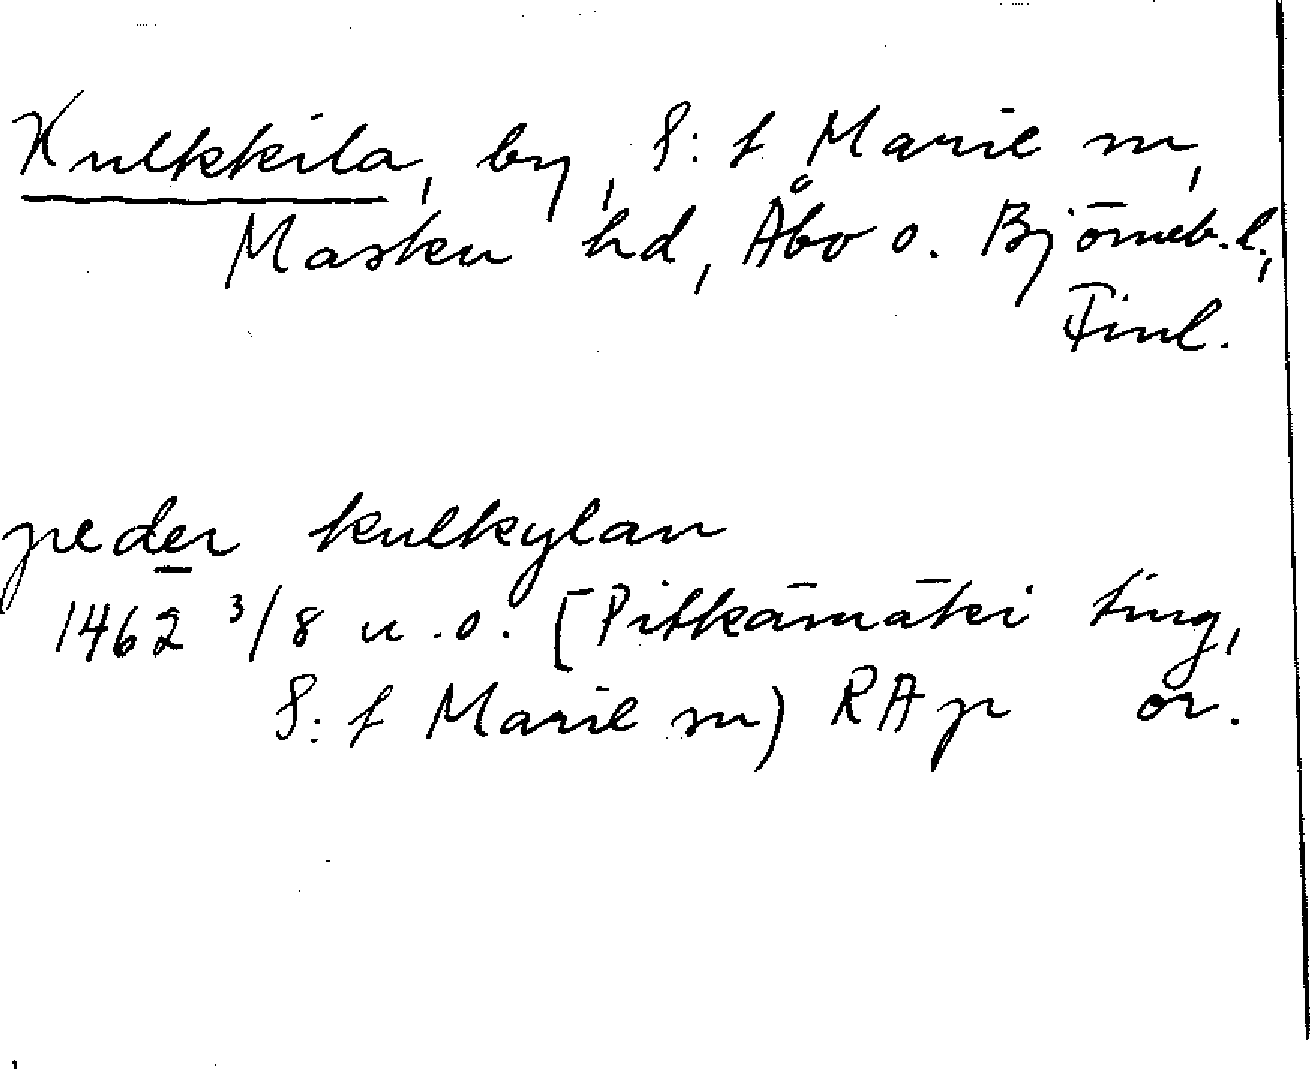 Kulkkila, by, S:t Marie sn,
Masku hd, Åbo o. Björneb. l.,
Finl.
peder kulkylan
1462 3/8 u.o. [Pitkämäki ting,
S:t Marie sn) RAp or.